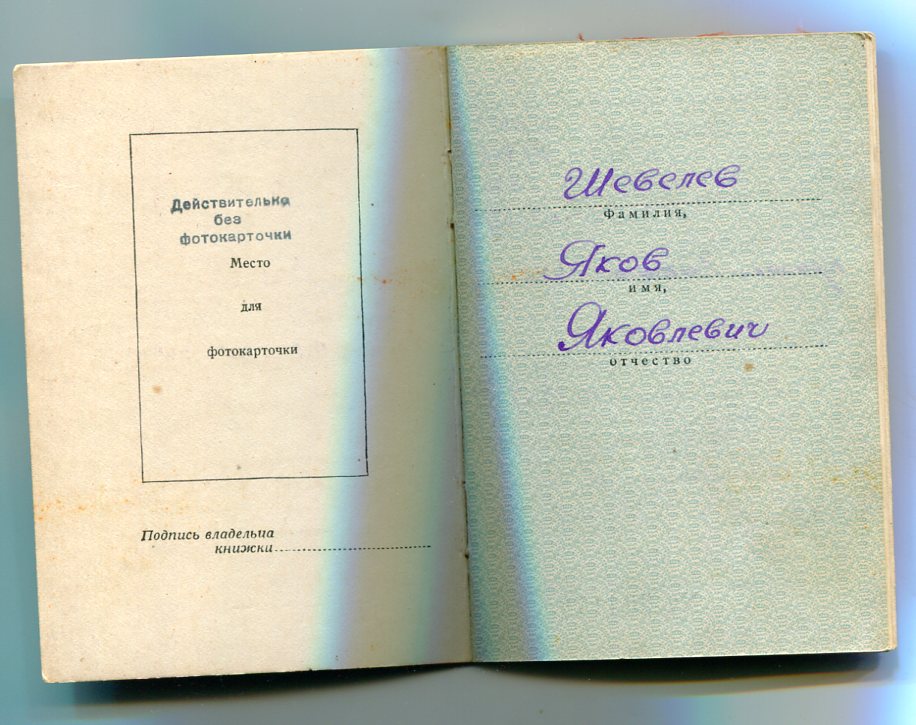 Действительно
без
фотокарточки
Место
для
фотокарточки
Подпись владельца
книжки
Шевелев
Фамилия,
Яков
имя,
Яковлевич
отчество